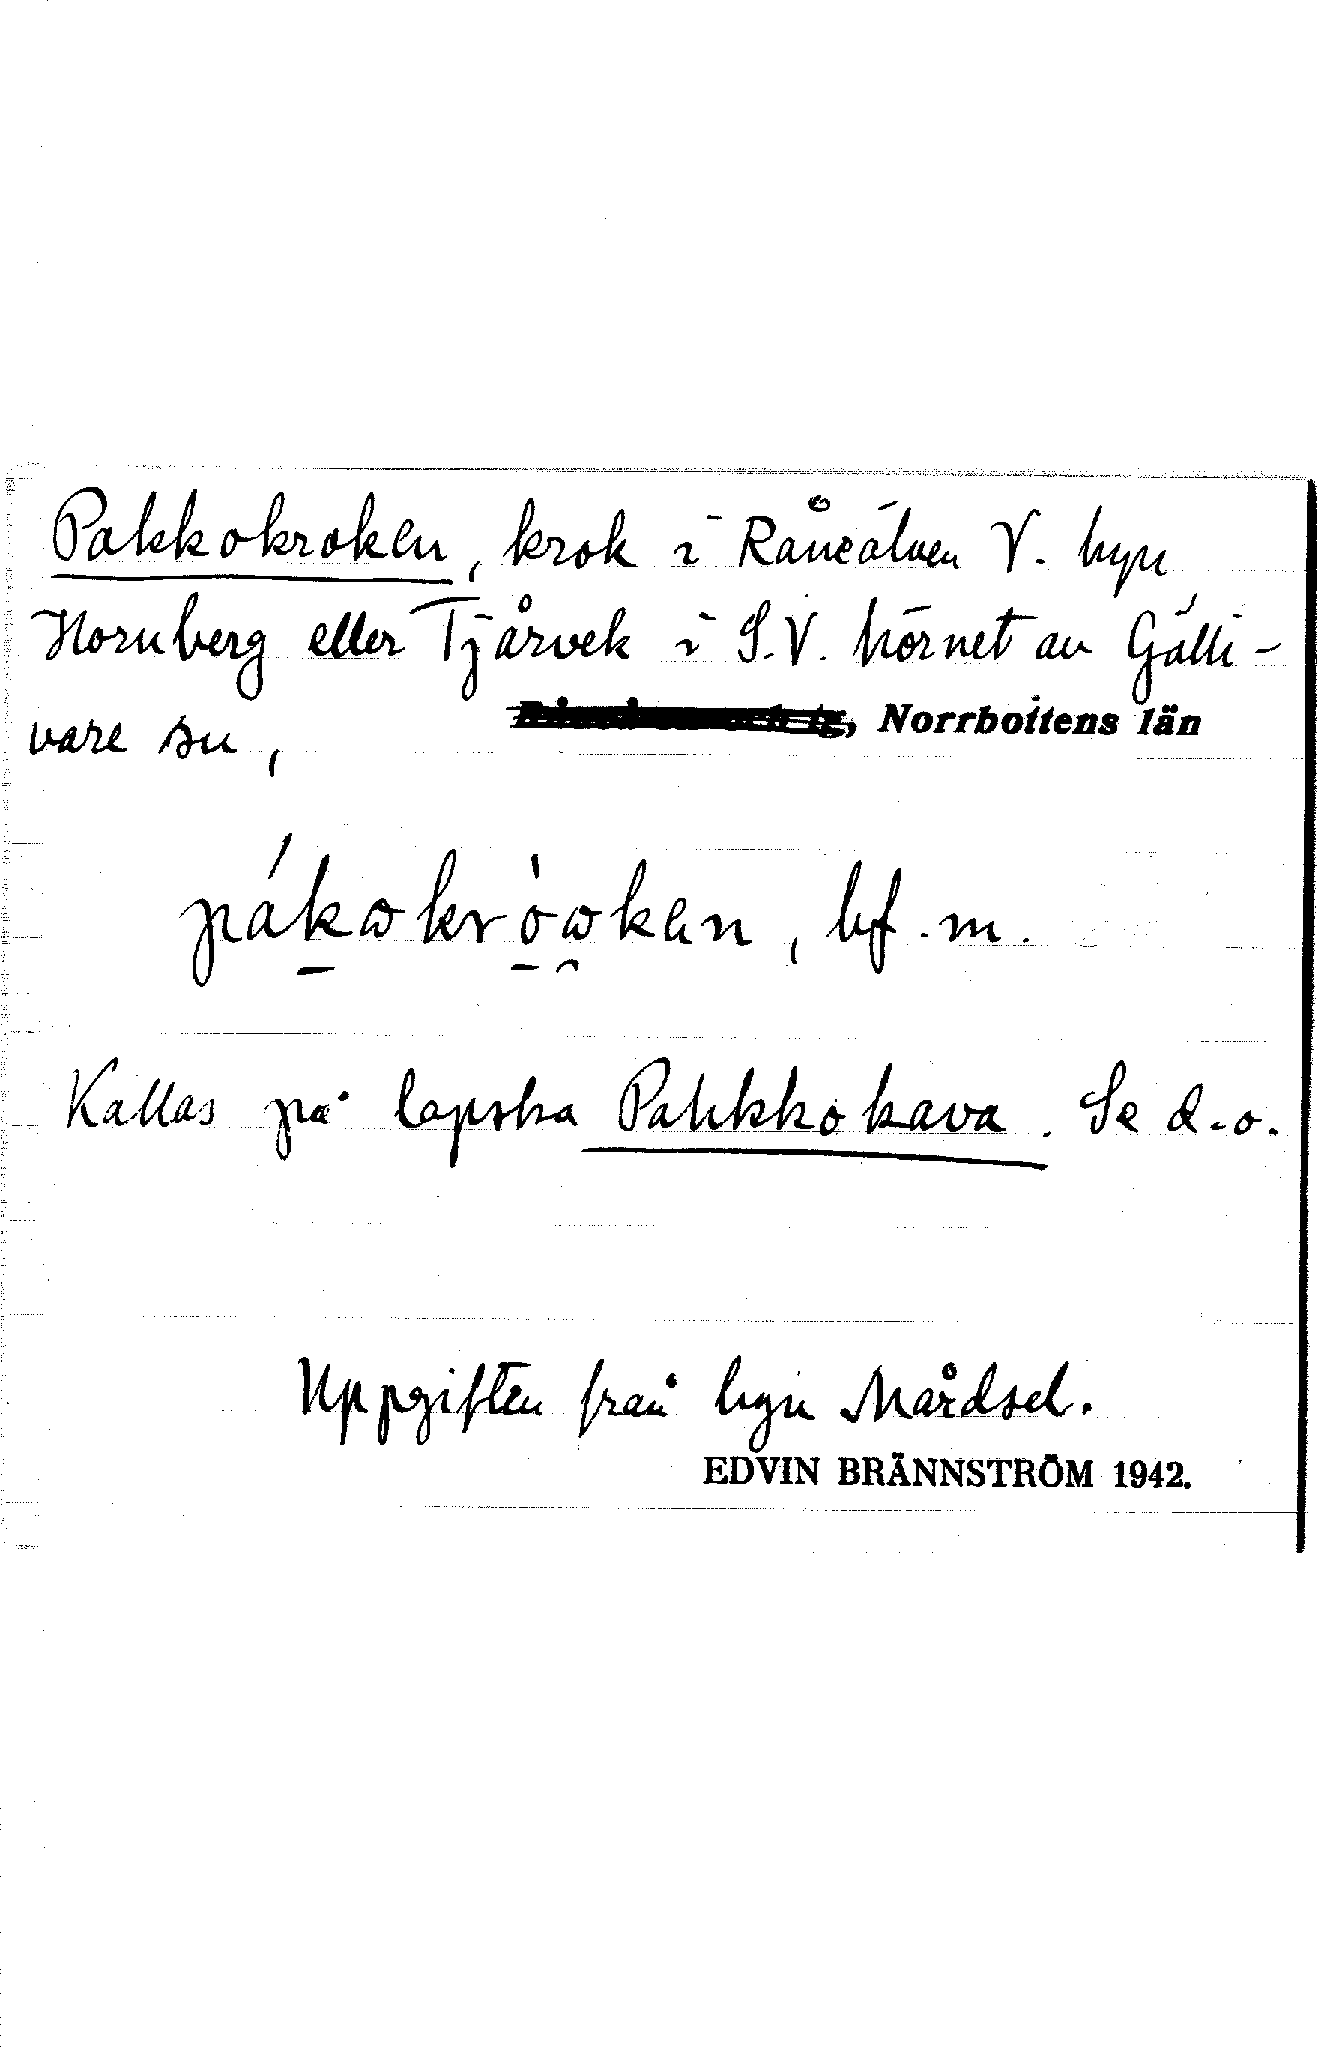 Pakkokroken, krok i Råneälven V. byn
Hornberg eller Tjårvek i S.V. hörnet av Gälli-
vare sn, Norrbottens län
pákωkròωkεn, bf. m.
Kallas på lapska Pahkkokava. Se d.o.
Uppgiften från byn Mårdsel.
EDVIN BRÄNNSTRÖM 1942.